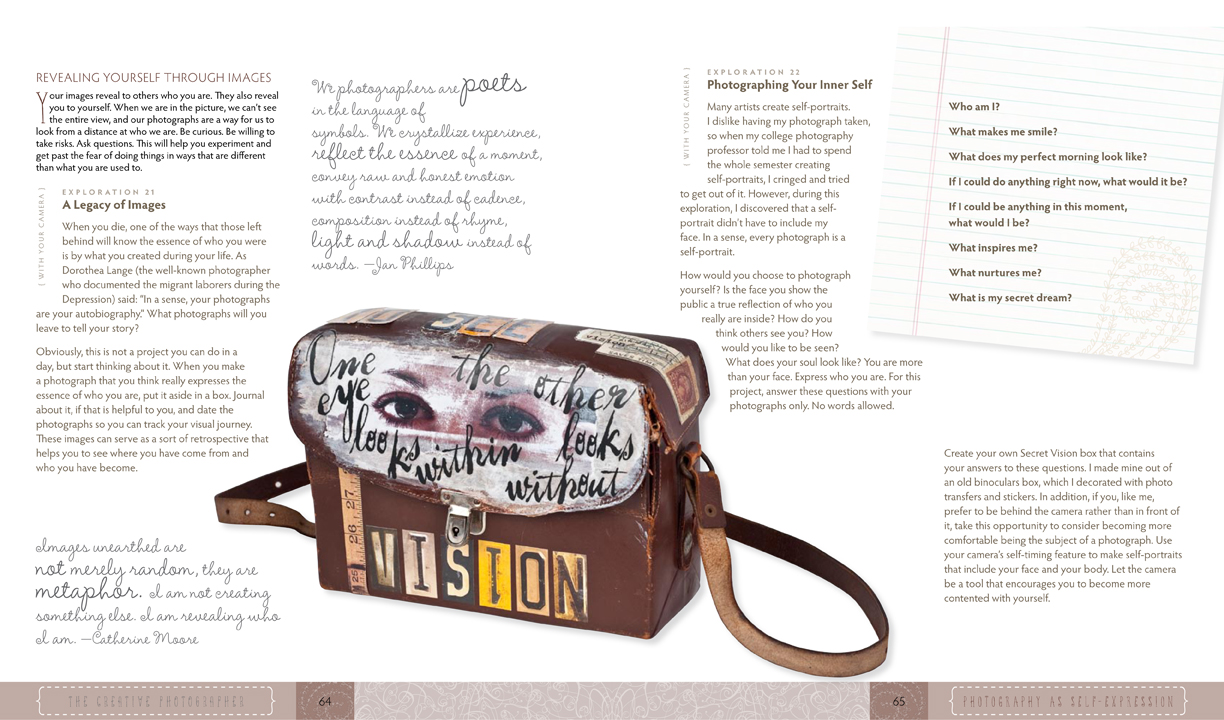 REVEALING YOURSELF THROUGH IMAGES
Your images reveal to others who you are. They also reveal
you to yourself. When we are in the picture, we can't see
the entire view, and our photographs are a way for us to
look from a distance at who we are. Be curious. Be willing to
take risks. Ask questions. This will help you experiment and
get past the fear of doing things in ways that are different
than what you are used to.
{ WITH YOUR CAMERA }
EXPLORATION 21
A Legacy of Images
When you die, one of the ways that those left
behind will know the essence of who you were
is by what you created during your life. As
Dorothea Lange (the well-known photographer
who documented the migrant laborers during the
Depression) said: "In a sense, your photographs
are your autobiography." What photographs will you
leave to tell your story?
Obviously, this is not a project you can do in a
day, but start thinking about it. When you make
a photograph that you think really expresses the
essence of who you are, put it aside in a box. Journal
about it, if that is helpful to you, and date the
photographs so you can track your visual journey.
These images can serve as a sort of retrospective that
helps you to see where you have come from and
who you have become.
Images unearthed are
not merely random, they are
metaphor. I am not creating
something else. I am revealing who
I am. —Catherine Moore
We photographers are poets
in the language of
symbols. We crystallize experience,
reflect the essence of a moment,
convey raw and honest emotion
with contrast instead of cadence,
composition instead of rhyme,
light and shadow instead of
words. —Jan Phillips
TO SEE
One eye looks within
the other looks without
27
26
25
VISION
{ WITH YOUR CAMERA }
EXPLORATION 22
Photographing Your Inner Self
Many artists create self-portraits.
I dislike having my photograph taken,
so when my college photography
professor told me I had to spend
the whole semester creating
self-portraits, I cringed and tried
to get out of it. However, during this
exploration, I discovered that a self-
portrait didn't have to include my
face. In a sense, every photograph is a
self-portrait.
How would you choose to photograph
yourself? Is the face you show the
public a true reflection of who you
really are inside? How do you
think others see you? How
would you like to be seen?
What does your soul look like? You are more
than your face. Express who you are. For this
project, answer these questions with your
photographs only. No words allowed.
Who am I?
What makes me smile?
What does my perfect morning look like?
If I could do anything right now, what would it be?
If I could be anything in this moment,
what would I be?
What inspires me?
What nurtures me?
What is my secret dream?
Create your own Secret Vision box that contains
your answers to these questions. I made mine out of
an old binoculars box, which I decorated with photo
transfers and stickers. In addition, if you, like me,
prefer to be behind the camera rather than in front of
it, take this opportunity to consider becoming more
comfortable being the subject of a photograph. Use
your camera's self-timing feature to make self-portraits
that include your face and your body. Let the camera
be a tool that encourages you to become more
contented with yourself.
THE CREATIVE PHOTOGRAPHER
64
65
PHOTOGRAPHY AS SELF-EXPRESSION